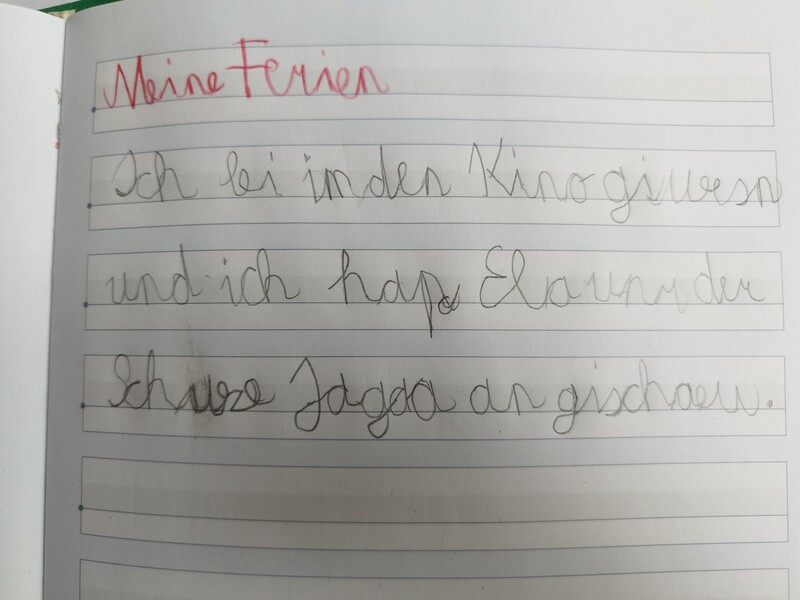 Meine Ferien
Ich bei in den Kino giwesn
und ich hape Ela und der
Schwze Jagda an gischaeu.